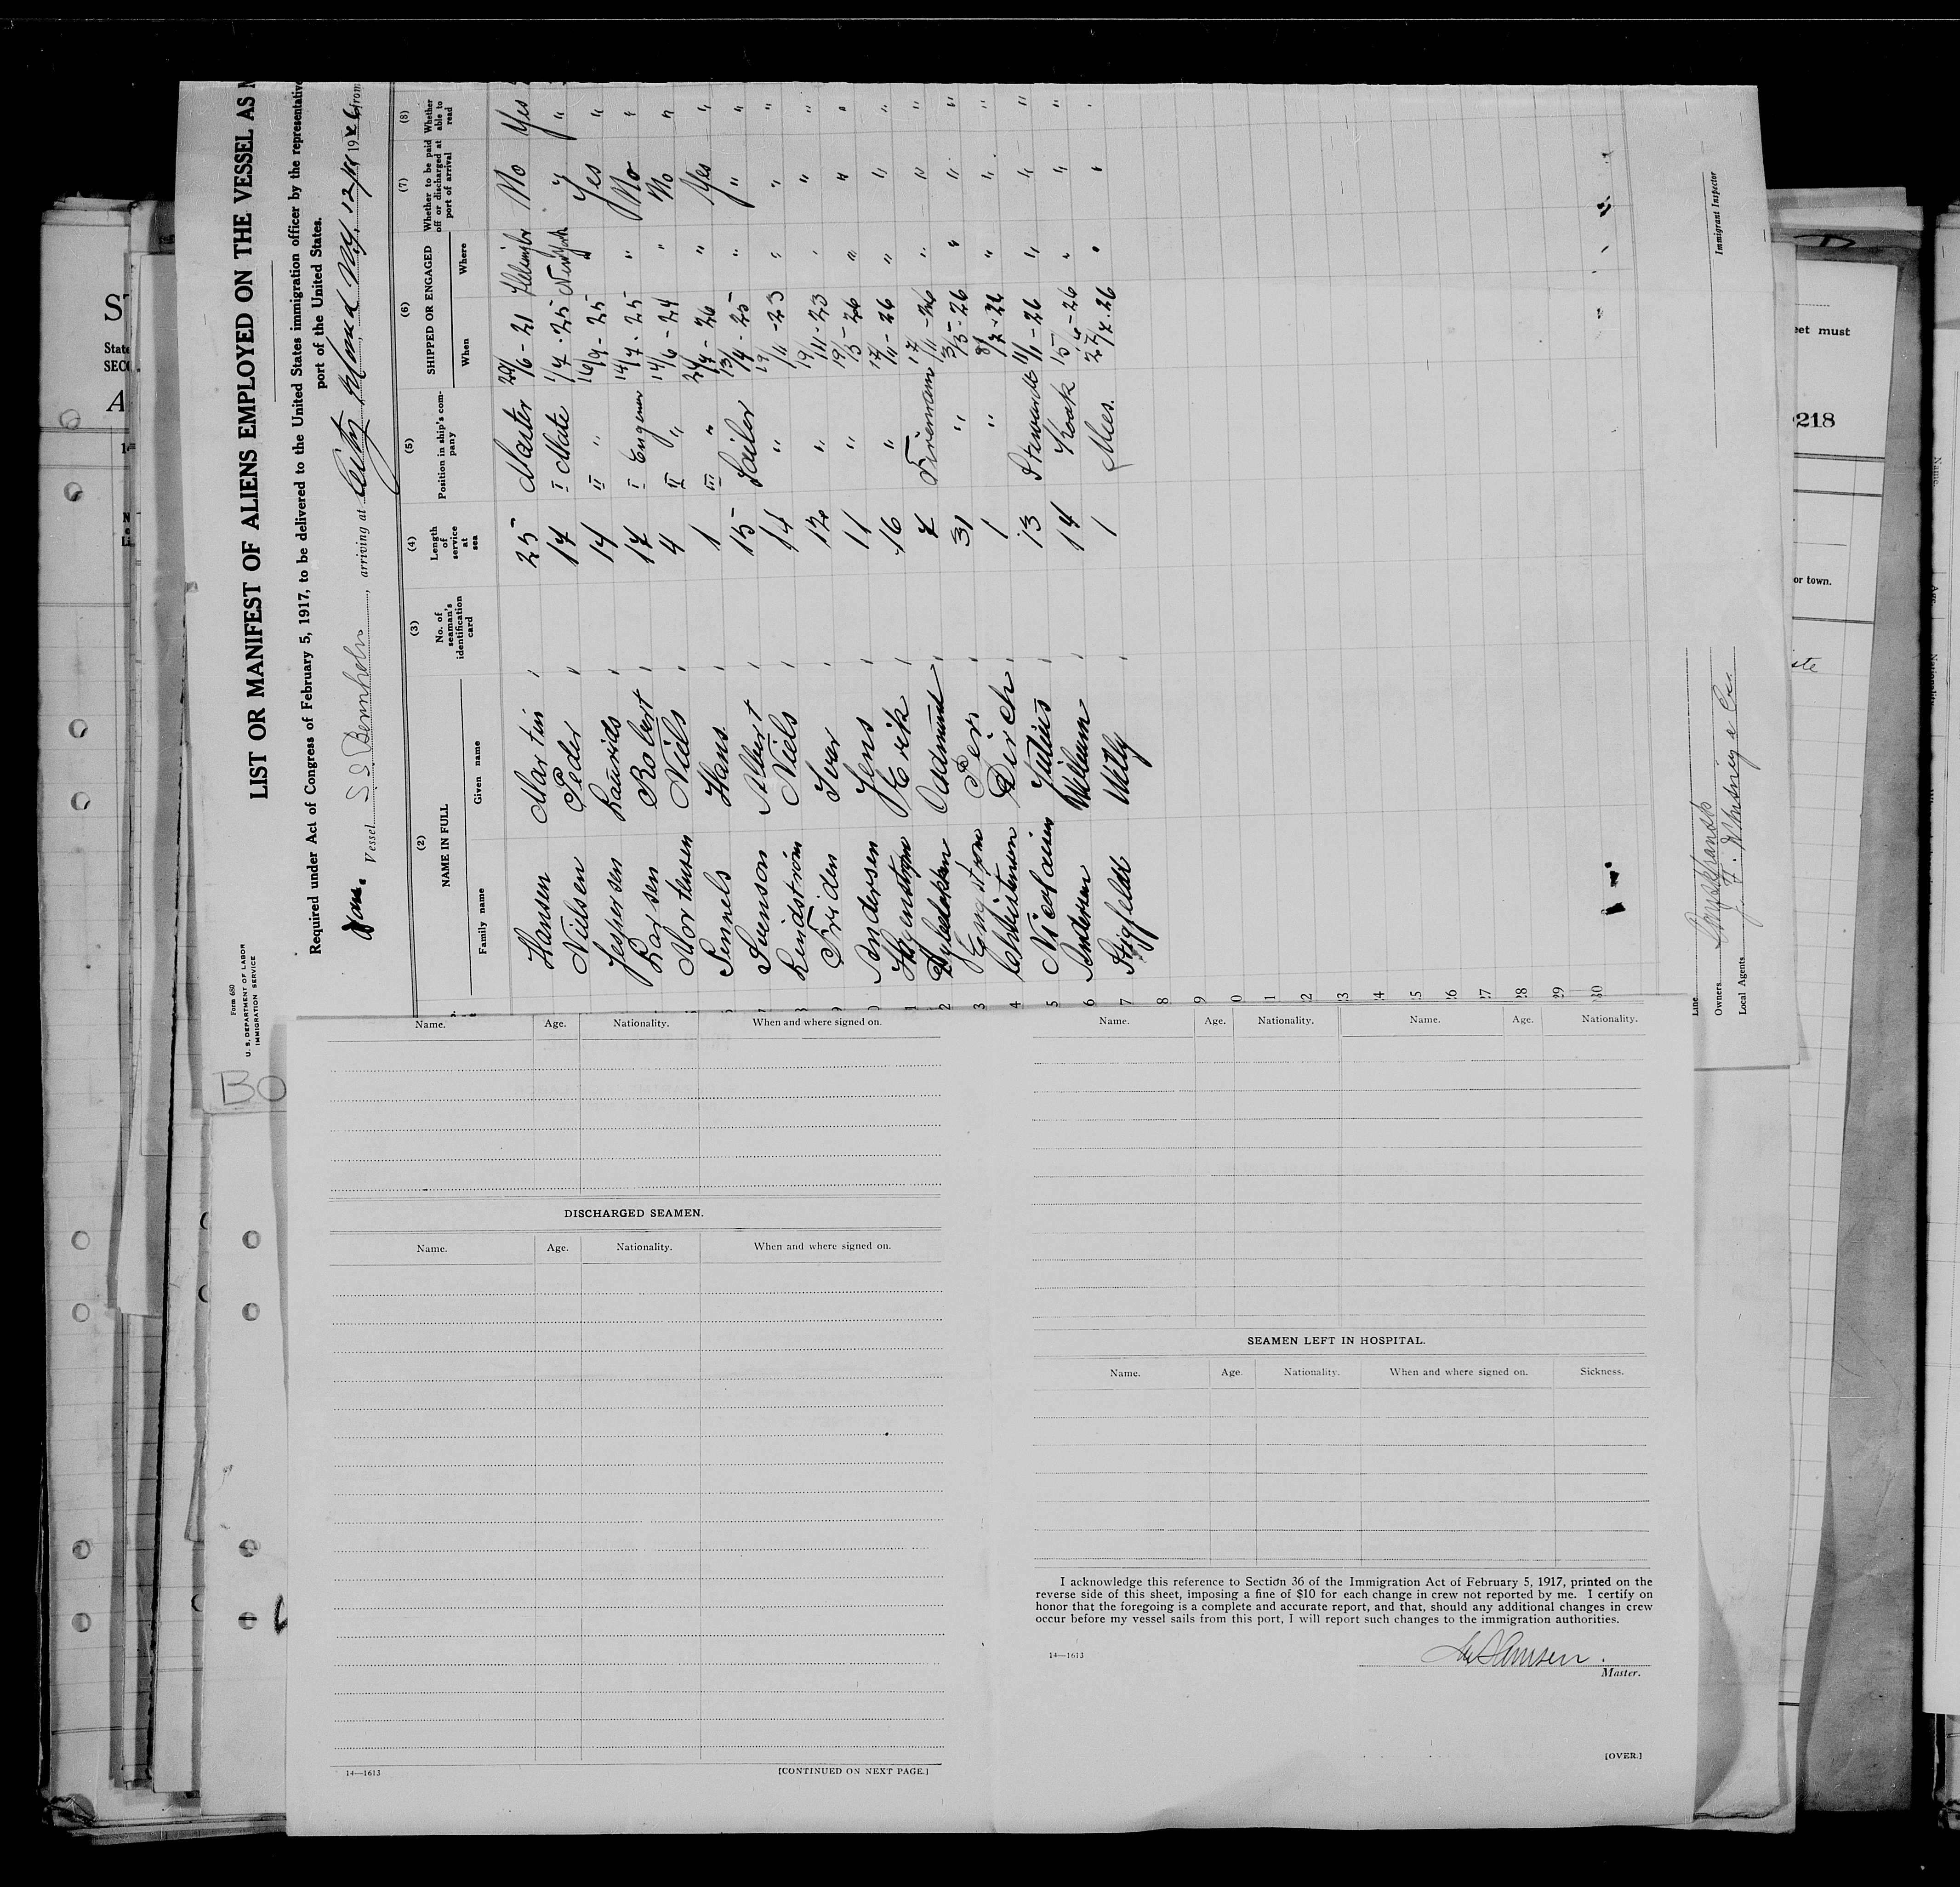 Form 680
U. S. DEPARTMENT OF LABOR
IMMIGRATION SERVICE
LIST OR MANIFEST OF ALIENS EMPLOYED ON THE VESSEL AS M
Required under Act of Congress of February 5, 1917, to be delivered to the United States immigration officer by the representative
port of the United States.
Dan. Vessel S S Bornholm, arriving at 1926, from
(2) (3) (4) (5) (6) (7) (8)
NAME IN FULL No. of seaman's identification card Length of service at sea Position in ship's company SHIPPED OR ENGAGED Whether to be paid off or discharged at port of arrival Whether able to read
Family name Given name When Where
Hansen Martin " 25 Master 24/6 - 21 No Yes
Nielsen Peder " 17 I Mate 1/7 - 25 New York " "
Jespersen Laurids " 14 II " 16/9 - 25 " Yes "
Larsen Robert " 17 I Engener 14/7 - 25 " No "
Mortensen Niels " 4 II " 14/6 - 24 " No "
Sennels Hans " 1 III " 24/7 - 26 " Yes "
Svenson Albert " 15 Sailor 13/4 - 25 " " "
Lindström Niels " 14 " 19/11 - 23 " " "
Friden Ivar " 12 " 19/11 - 23 " " "
Andersen Jens " 11 " 19/5 - 26 " " "
Erik " 16 " 17/11 - 26 " " "
Oddmund " 7 Fireman 17/11 - 26 " " "
Engstrom Per " 31 " 3/5 - 26 " " "
Christensen Dirch " 1 " 8/7 - 26 " " "
Nicolaisen Julius " 13 Stewardt 11/1 - 26 " " "
Andersen William " 14 Kook 15/6 - 26 " " "
Stigfeldt Willy " 1 Mes. 27/7 - 26 " " "
8
9
0
1
2
23
24
25
26
27
28
29
30
Line
Owners
Local Agents
Immigrant Inspector
BO
Name. Age. Nationality. When and where signed on.
DISCHARGED SEAMEN.
Name. Age. Nationality. When and where signed on.
14—1613 [CONTINUED ON NEXT PAGE.]
Name. Age. Nationality. Name. Age. Nationality.
SEAMEN LEFT IN HOSPITAL.
Name. Age. Nationality. When and where signed on. Sickness.
I acknowledge this reference to Section 36 of the Immigration Act of February 5, 1917, printed on the
reverse side of this sheet, imposing a fine of $10 for each change in crew not reported by me. I certify on
honor that the foregoing is a complete and accurate report, and that, should any additional changes in crew
occur before my vessel sails from this port, I will report such changes to the immigration authorities.
14—1613
Master.
[OVER.]
eet must
218
or town.